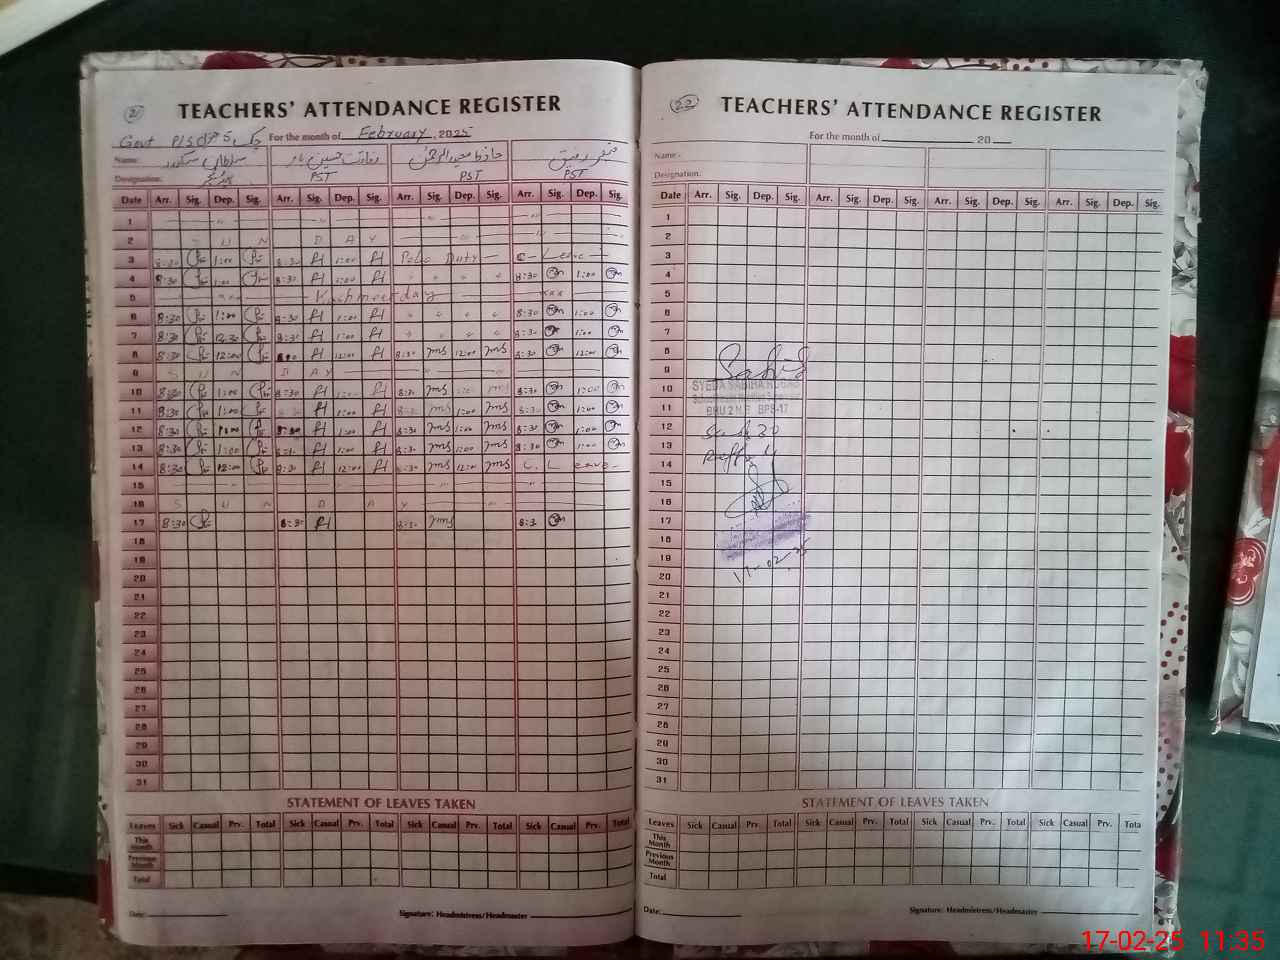 21
TEACHERS' ATTENDANCE REGISTER
Govt چک For the month of February, 2025
Name: سلطان سکندر رفاقت حسین حافظ مجیدالرحمٰن رفیق
Designation: PST PST PST
Date Arr. Sig. Dep. Sig. Arr. Sig. Dep. Sig. Arr. Sig. Dep. Sig. Arr. Sig. Dep. Sig.
1
2 S U N D A Y
3 8:30 1:00 8:30 1:00 Polio Duty C-Leave
4 8:30 1:00 8:30 1:00 8:30 1:00
5 Kashmeer day
6 8:30 1:00 8:30 1:00 8:30 1:00
7 8:30 12:30 8:30 1:00 8:30 1:00
8 8:30 12:00 12:00 8:30 ms 12:00 ms 8:30 12:00
9 S U N D A Y
10 8:30 1:00 8:30 1:00 8:30 ms ms 8:30 1:00
11 8:30 1:00 1:00 8:30 ms 1:00 ms 8:30 1:00
12 8:30 1:00 8:30 1:00 8:30 ms 1:00 ms 8:30 1:00
13 8:30 1:00 8:30 1:00 8:30 ms 1:00 ms 8:30 1:00
14 8:30 12:00 8:30 12:00 8:30 ms 12:00 ms C. Leave
15
16 S U N D A Y
17 8:30 8:30 8:30 ms 8:3
18
19
20
21
22
23
24
25
26
27
28
29
30
31
STATEMENT OF LEAVES TAKEN
Leaves Sick Casual Prv. Total Sick Casual Prv. Total Sick Casual Prv. Total Sick Casual Prv. Total
This Month
Previous Month
Total
Date: Signature: Headmistress/Headmaster
22
TEACHERS' ATTENDANCE REGISTER
For the month of 20
Name:
Designation:
Date Arr. Sig. Dep. Sig. Arr. Sig. Dep. Sig. Arr. Sig. Dep. Sig. Arr. Sig. Dep. Sig.
1
2
3
4
5
6
7
8
9
10 SYEDA SABIHA
11 BHU 2 BPS-17
12
13
14
15
16
17
18
19 17-02-25
20
21
22
23
24
25
26
27
28
29
30
31
STATEMENT OF LEAVES TAKEN
Leaves Sick Casual Prv. Total Sick Casual Prv. Total Sick Casual Prv. Total Sick Casual Prv. Tota
This Month
Previous Month
Total
Date: Signature: Headmistress/Headmaster
17-02-25 11:35